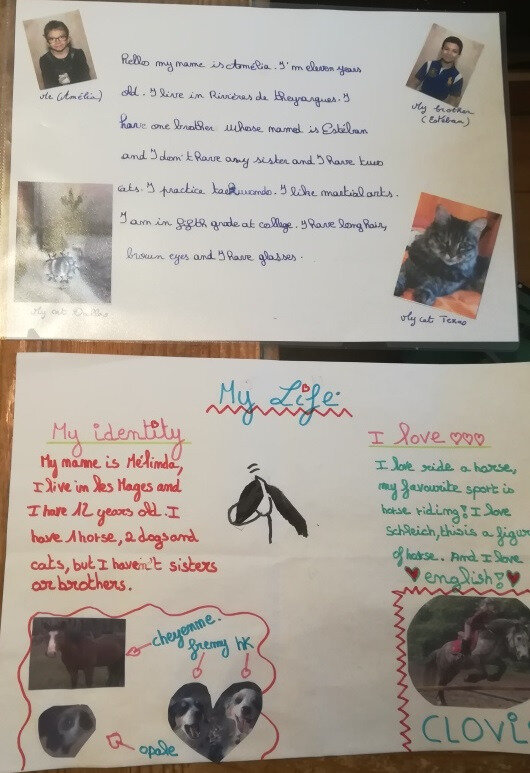 Me (Amélia)
Hello my name is Amélia. I'm eleven years
old. I live in Rivières de theyargues. I
have one brother whose named is Estéban
and I don't have any sister and I have two
cats. I practice taekwondo. I like martial arts.
I am in fifth grade at college. I have long hair,
brown eyes and I have glasses.
My brother
(Estéban)
My cat Dallas
My cat Texas
My Life
My identity
My name is Mélinda,
I live in les Mages and
I have 12 years old. I
have 1 horse, 2 dogs and
cats, but I haven't sisters
or brothers.
I love ♡♡♡
I love ride a horse,
my favourite sport is
horse riding! I love
schleich, this is a figur
of horse. And I love
♥ english! ♥
cheyenne.
HK
opale
CLOVI